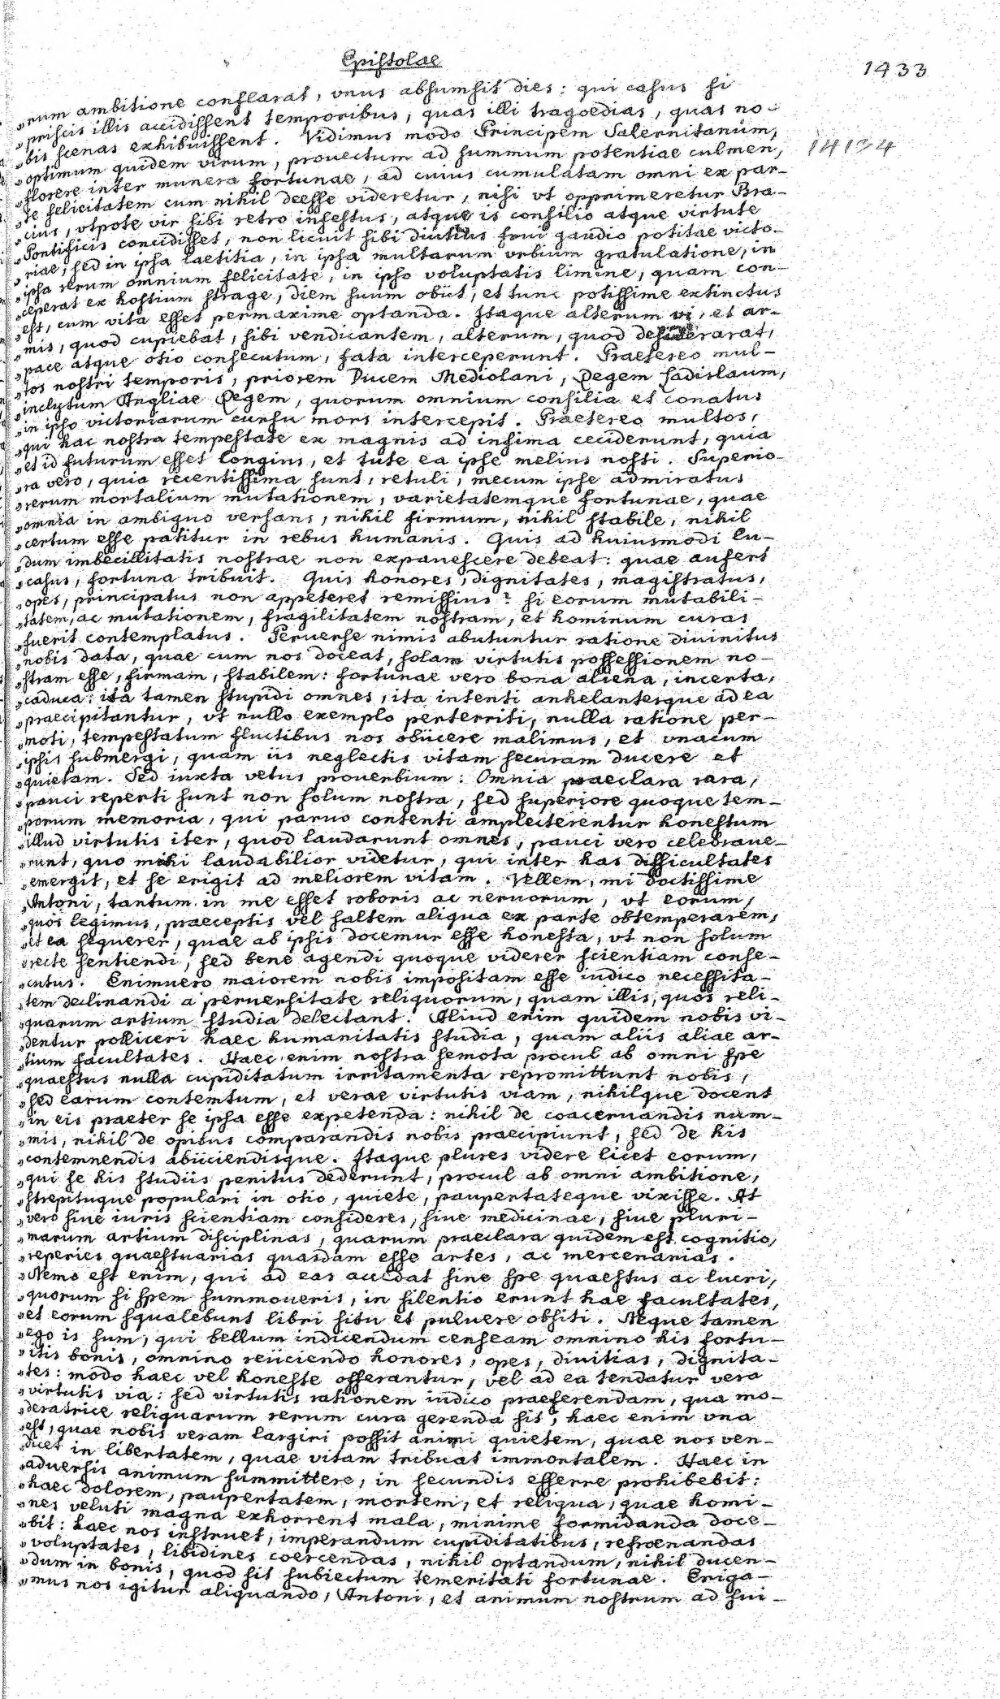 Epistolae
1433
„rum ambitione conflarat, vnus absumsit dies: qui casus si
„priscis illis accidissent temporibus, quas illi tragoedias, quas no-
„bis scenas exhibuissent. Vidimus modo Principem Salernitanum,
14134
„optimum quidem virum, prouectum ad summum potentiae culmen,
„florere inter munera fortunae, ad cuius cumulatam omni ex par-
„te felicitatem cum nihil deesse videretur, nisi vt opprimeretur Bra-
„cius, vtpote vir sibi retro infestus, atque is consilio atque virtute
„Pontificis concidisset, non licuit sibi diutius frui gaudio potitae victo-
„riae, sed in ipsa laetitia, in ipsa multarum vrbium gratulatione, in
„ipsa rerum omnium felicitate, in ipso voluptatis limine, quam con-
„ceperat ex hostium strage, diem suum obiit, et tunc potissime extinctus
„est, cum vita esset permaxime optanda. Itaque alterum vi, et ar-
„mis, quod cupiebat, sibi vendicantem, alterum, quod desiderarat,
„pace atque otio consecutum, fata interceperunt. Praetereo mul-
„tos nostri temporis, priorem Ducem Mediolani, Regem Ladislaum,
„inclytum Angliae Regem, quorum omnium consilia et conatus
„in ipso victoriarum cursu mors intercepit. Praetereo multos,
„qui hac nostra tempestate ex magnis ad infima ceciderunt, quia
„et id futurum esset longius, et tute ea ipse melius nosti. Superio-
„ra vero, quia recentissima sunt, retuli, mecum ipse admiratus
„rerum mortalium mutationem, varietatemque fortunae, quae
„omnia in ambiguo versans, nihil firmum, nihil stabile, nihil
„certum esse patitur in rebus humanis. Quis ad huiusmodi lu-
„dum imbecillitatis nostrae non expauescere debeat: quae aufert
„casus, fortuna tribuit. Quis honores, dignitates, magistratus,
„opes, principatus non appeteret remissius? si eorum mutabili-
„tatem, ac mutationem, fragilitatem nostram, et hominum curas
„fuerit contemplatus. Peruerse nimis abutuntur ratione diuinitus
„nobis data, quae cum nos doceat, solam virtutis possessionem no-
„stram esse, firmam, stabilem: fortunae vero bona aliena, incerta,
„caduca: ita tamen stupidi omnes, ita intenti anhelantesque ad ea
„praecipitantur, vt nullo exemplo perterriti, nulla ratione per-
„moti, tempestatum fluctibus nos obiicere malimus, et vnacum
„ipsis submergi, quam iis neglectis vitam securam ducere et
„quietam. Sed iuxta vetus prouerbium: Omnia praeclara rara,
„pauci reperti sunt non solum nostra, sed superiore quoque tem-
„porum memoria, qui paruo contenti amplecterentur honestum
„illud virtutis iter, quod laudarunt omnes, pauci vero celebraue-
„runt, quo mihi laudabilior videtur, qui inter has difficultates
„emergit, et se erigit ad meliorem vitam. Vellem, mi doctissime
„Antoni, tantum in me esset roboris ac neruorum, vt eorum,
„quos legimus, praeceptis vel saltem aliqua ex parte obtemperarem,
„et ea sequerer, quae ab ipsis docemur esse honesta, vt non solum
„recte sentiendi, sed bene agendi quoque viderer scientiam conse-
„cutus. Enimuero maiorem nobis impositam esse iudico necessita-
„tem declinandi a peruersitate reliquorum, quam illis, quos reli-
„quarum artium studia delectant. Aliud enim quidem nobis vi-
„dentur polliceri haec humanitatis studia, quam aliis aliae ar-
„tium facultates. Haec enim nostra semota procul ab omni spe
„quaestus nulla cupiditatum irritamenta repromittunt nobis,
„sed earum contemtum, et verae virtutis viam, nihilque docent
„in eis praeter se ipsa esse expetenda: nihil de coaceruandis num-
„mis, nihil de opibus comparandis nobis praecipiunt, sed de his
„contemnendis abiiciendisque. Itaque plures videre licet eorum,
„qui se his studiis penitus dederunt, procul ab omni ambitione,
„strepituque populari in otio, quiete, paupertateque vixisse. At
„vero siue iuris scientiam consideres, siue medicinae, siue pluri-
„marum artium disciplinas, quarum praeclara quidem est cognitio,
„reperies quaestuarias quasdam esse artes, ac mercenarias.
„Nemo est enim, qui ad eas accedat sine spe quaestus ac lucri,
„quorum si spem summoueris, in silentio erunt hae facultates,
„et eorum squalebunt libri situ et puluere obsiti. Neque tamen
„ego is sum, qui bellum indicendum censeam omnino his fortu-
„itis bonis, omnino reiiciendo honores, opes, diuitias, dignita-
„tes: modo haec vel honeste offerantur, vel ad ea tendatur vera
„virtutis via: sed virtutis rationem iudico praeferendam, qua mo-
„deratrice reliquarum rerum cura gerenda sit, haec enim vna
„est, quae nobis veram largiri possit animi quietem, quae nos ven-
„dicet in libertatem, quae vitam tribuat immortalem. Haec in
„aduersis animum summittere, in secundis efferre prohibebit:
„haec dolorem, paupertatem, mortem, et reliqua, quae homi-
„nes veluti magna exhorrent mala, minime formidanda doce-
„bit: haec nos instruet, imperandum cupiditatibus, refraenandas
„voluptates, libidines coercendas, nihil optandum, nihil ducen-
„dum in bonis, quod sit subiectum temeritati fortunae. Eriga-
„mus nos igitur aliquando, Antoni, et animum nostrum ad sui-